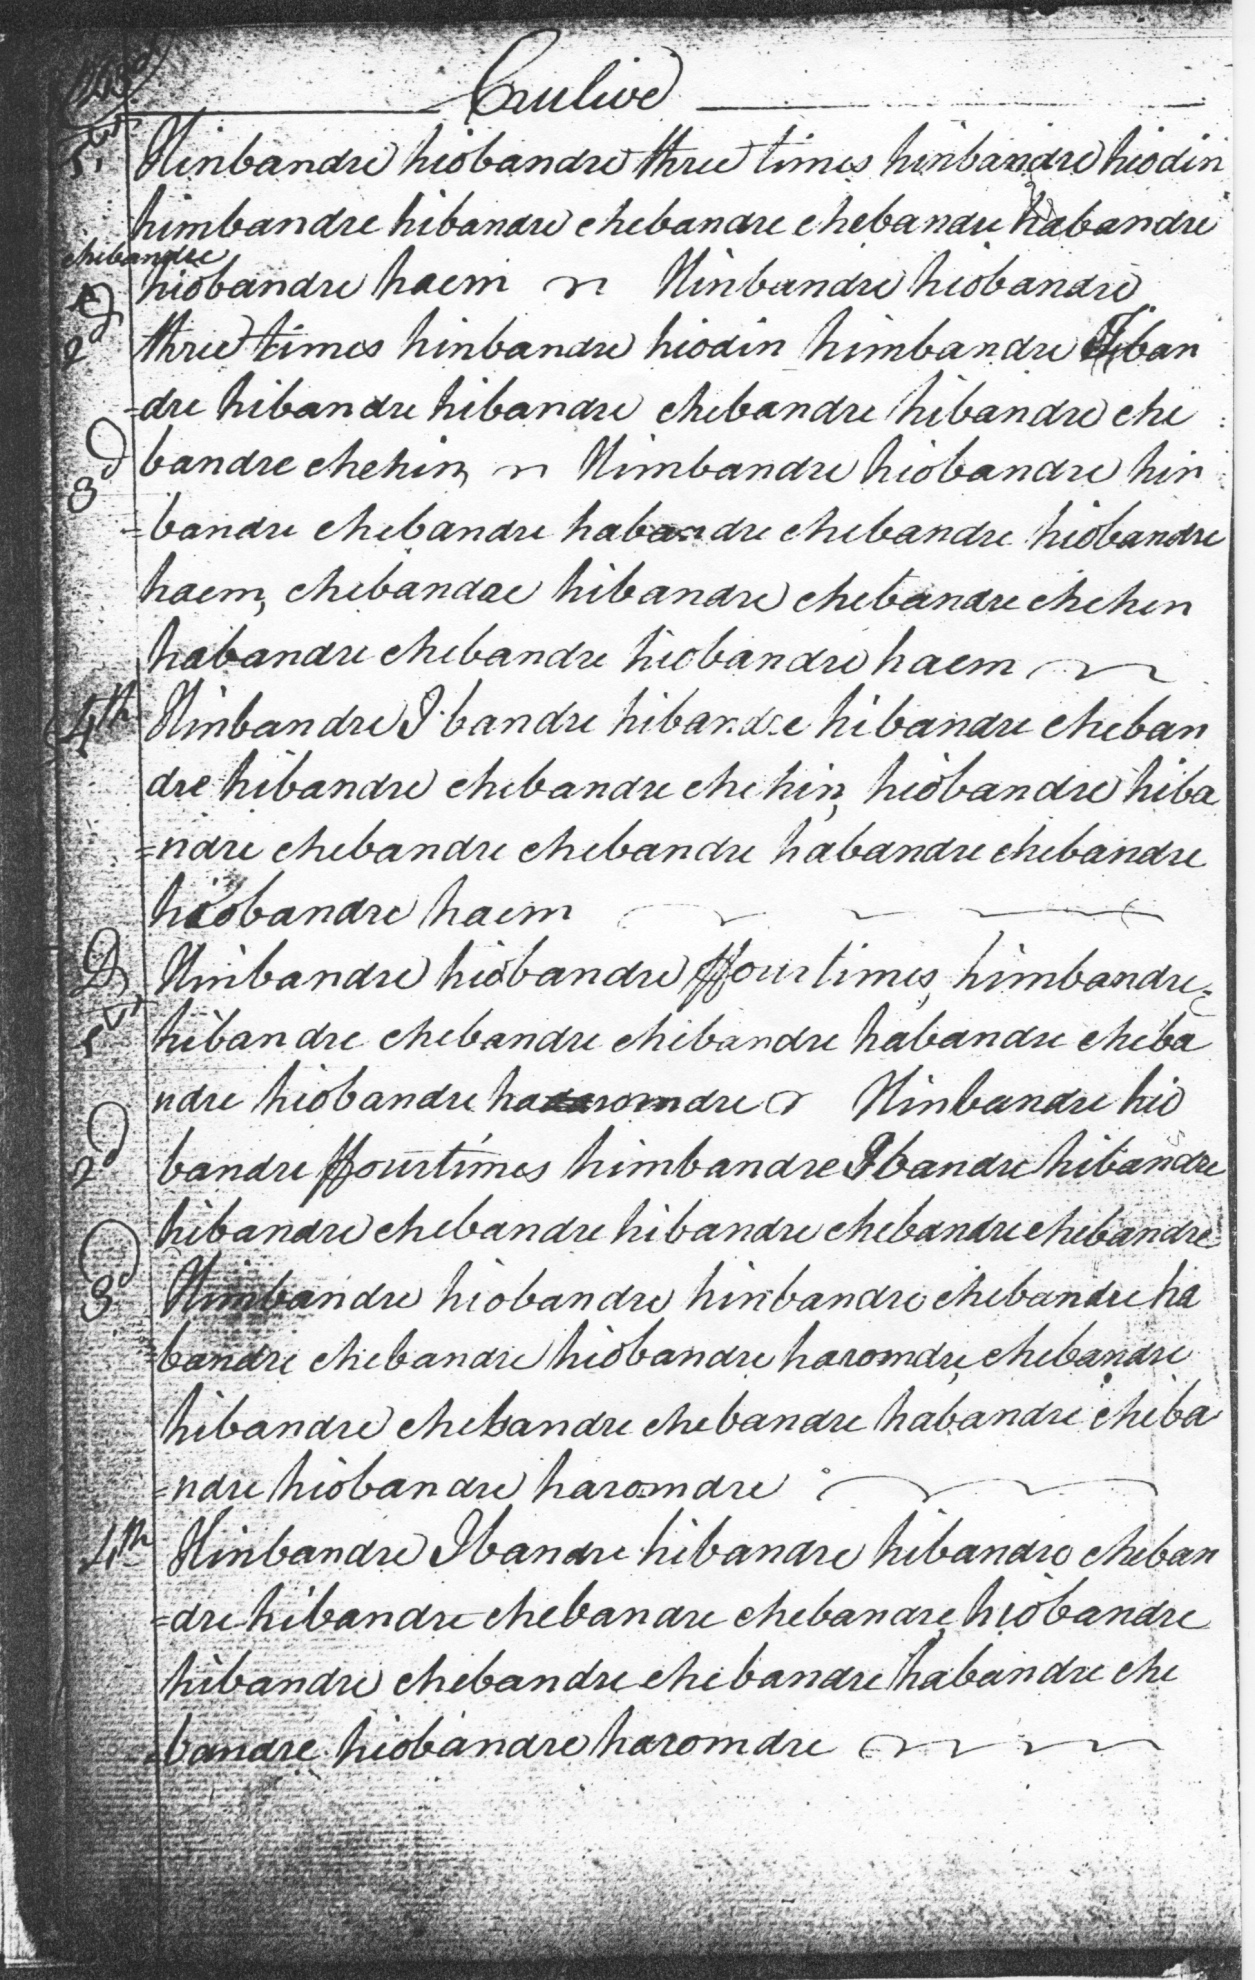 Crulive
1st Hinbandre hiobandre three times hinbandre hiodin
himbandre hibandre chebandre chebandre habandre
chebandre
hiobandre haem Hinbandre hiobandre
D
2d three times hinbandre hiodin himbandre Iban
=dre hibandre hibandre chebandre hibandre che
3d bandre chehin, Himbandre hiobandre hin
=bandre chebandre habandre chebandre hiobandre
haem, chebandre hibandre chebandre chehin
habandre chebandre hiobandre haem
4th Hinbandre I bandre hibandre hibandre cheban
dre hibandre chebandre chehin, hiobandre hiba
=ndre chebandre chebandre habandre chebandre
hiobandre haem
D
1st Hinbandre hiobandre ffour times, himbandre
hibandre chebandre chebandre habandre cheba
ndre hiobandre haromdre Hinbandre hio
2d bandre ffourtimes himbandre Ibandre hibandre
hibandre chebandre hibandre chebandre chebandre
3d Himbandre hiobandre hinbandre chebandre ha
=bandre chebandre hiobandre haromdre, chebandre
hibandre chebandre chebandre habandre cheba
=ndre hiobandre haromdre
4th Hinbandre Ibandre hibandre hibandre cheban
=dre hibandre chebandre chebandre, hiobandre
hibandre chebandre chebandre habandre che
=bandre hiobandre haromdre